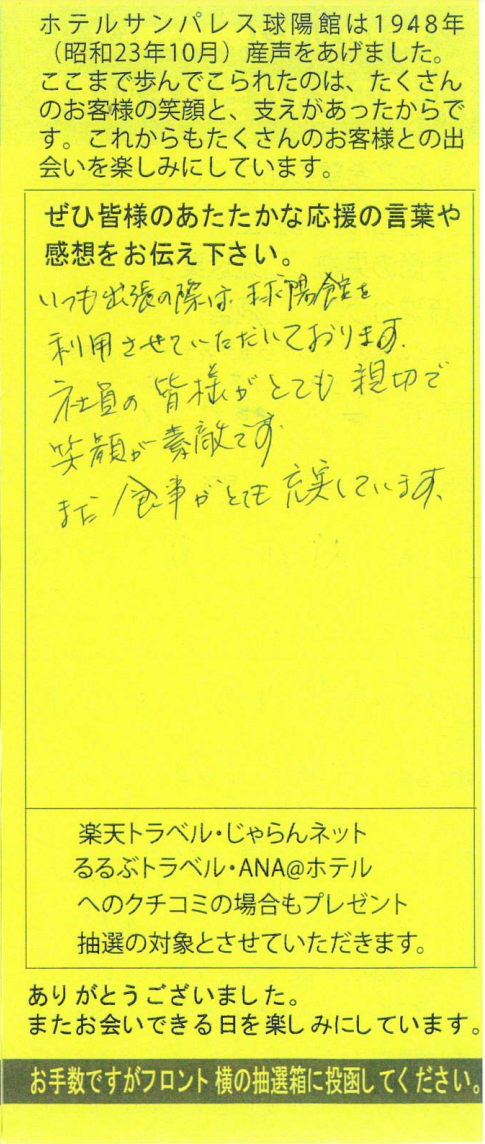 ホテルサンパレス球陽館は1948年
（昭和23年10月）産声をあげました。
ここまで歩んでこられたのは、たくさん
のお客様の笑顔と、支えがあったからで
す。これからもたくさんのお客様との出
会いを楽しみにしています。
ぜひ皆様のあたたかな応援の言葉や
感想をお伝え下さい。
いつも出張の際は球陽館を
利用させていただいております。
社員の皆様がとても親切で
笑顔が素敵です
また食事がとても充実しています。
楽天トラベル・じゃらんネット
るるぶトラベル・ANA@ホテル
へのクチコミの場合もプレゼント
抽選の対象とさせていただきます。
ありがとうございました。
またお会いできる日を楽しみにしています。
お手数ですがフロント横の抽選箱に投函してください。